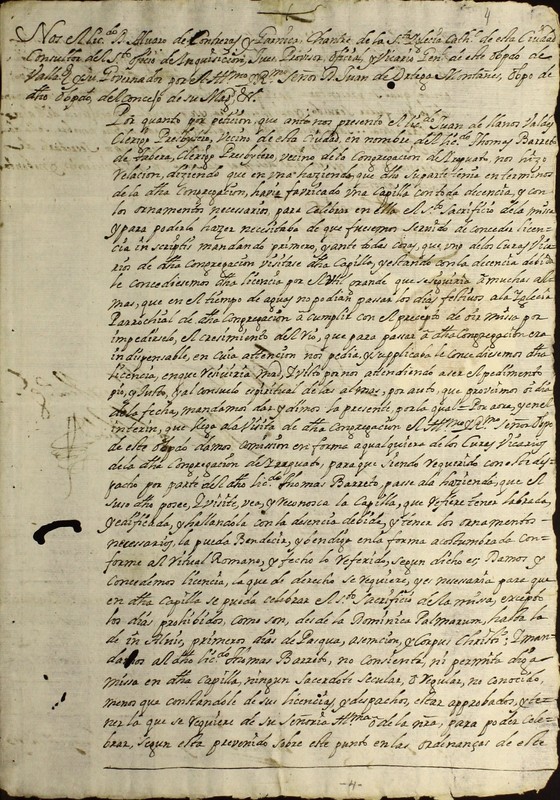 4
Nos el Liz.do D. Alvaro de Contreras y Garnica, Chantre de la S.ta Yglesia Cath.l de esta Ciudad
Consultor del S.to officio de Inquisicion, Juez Provisor, official, y Vicario Gen.l de este obpdo de
Vall.d y su Provincia por el Ill.mo y R.mo Señor D. Juan de Ortega Montañes, obpo de
dho obpdo, del Consejo de su Mag.d &.
Por quanto por peticion, que ante nos presento el Liz.do Juan de llanos Valdes
Clerigo Presbytero, vecino de esta Ciudad, en nombre del lic.do Thomas Barreto
de Tabera, Clerigo Presbytero, vecino de la Congregacion de Yrapuato, nos hizo
relacion, diziendo que en una hazienda, que dho su parte tenia en terminos
de la dha Congregacion, havia fabricado una Capilla con toda decencia, y con
los ornamentos necesarios, para celebrar en ella el S.to Sacrificio de la missa
y para poderlo hazer necesitaba de que fuesemos servido de conceder licen-
cia in scriptis mandando primero, y ante todas cosas, que uno de los Curas Vica-
rios de dha Congregacion visitase dha Capilla, y estando con la decencia debida
le concediesemos dha licencia por el Vtil grande que se seguiria a muchas al-
mas, que en el tiempo de aguas no podian passar los dias festivos a la Yglesia
Parrochial de dha Congregacion a cumplir con el precepto de oir misa por
impedirselo, el crecimiento del Rio, que para passar a dha Congregacion era
indispensable, en cuia attencion nos pedia, y suplicaba le concediesemos dha
licencia, en que reciviria m.d, Y visto por nos attendiendo a ser el pedimento
pio, y justo, y al consuelo espiritual de las almas, por auto, que proveimos oi dia
de la fecha, mandamos dar y dimos la presente, por la qual = Por aora, y en el
interin, que llega a la Visita de dha Congregacion el Ill.mo y R.mo Señor Obpo
de este obpdo damos comision en forma a qualquiera de los Curas Vicarios
de la dha Congregacion de Yrapuato, para que siendo requerido con este des-
pacho por parte del dho lic.do Thomas Barreto, passe a la hazienda, que el
suso dho posee, Y visite, vea, y reconosca la Capilla, que refiere tener labrada
y edificada, y hallandola con la decencia debida, y tener los ornamentos
necessarios, la pueda Bendecir, y bendiga en la forma acostumbrada Con-
forme al Ritual Romano, y fecho lo referido, segun dicho es; Damos y
concedemos licencia, la que de derecho se requiere, y es nesesaria para que
en dha Capilla se pueda celebrar el S.to Sacrificio de la missa, excepto
los dias prohibidos, como son, desde la Dominica Palmarum, hasta la
de in Albis, primeros dias de Pasqua, asencion, y Corpus Christi: Y man-
damos al dho lic.do Thomas Barreto, no consienta, ni permita diga
missa en dha Capilla, ningun Sacerdote secular, o Regular, no conocido,
menos que constandole de sus licencias, y despachos, estar approbados, y te-
ner la que se requiere de su Señoria Ill.ma o de la nra, para poder cele-
brar, segun esta prevenido sobre este punto en las ordenanzas de este
-4-